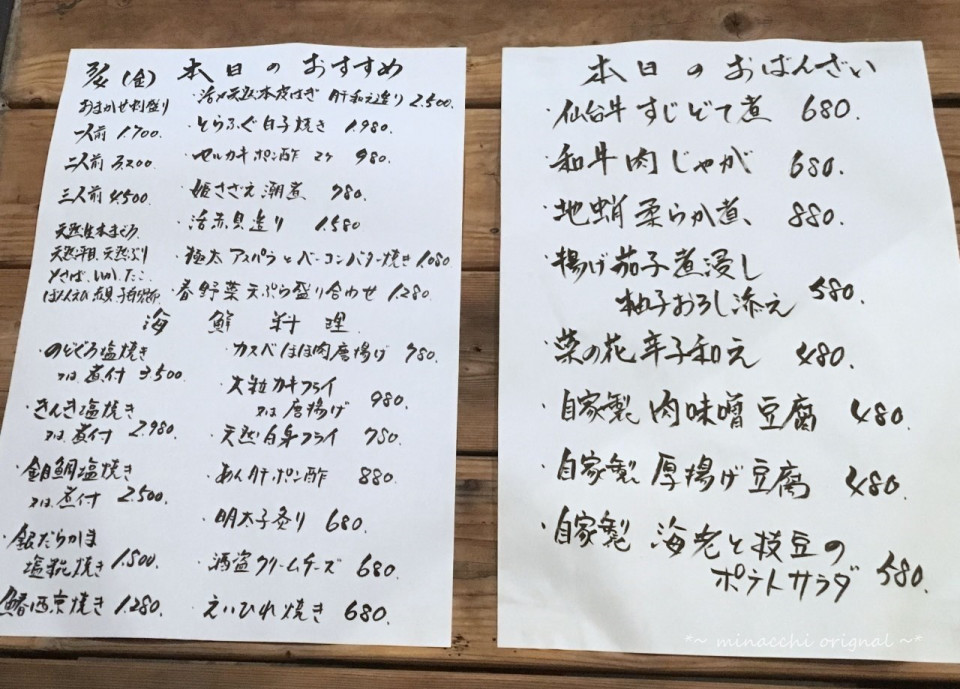 (金) 本日のおすすめ
おまかせ刺盛り
一人前 1.700
二人前 3.200
三人前 4.500
天然生本まぐろ
天然平目、天然ぶり
〆さば、いか、たこ
・活〆天然本皮はぎ 肝和え造り 2.500.
・とらふぐ白子焼き 1.980.
・セルカキポン酢 2ヶ 980.
・姫さざえ潮煮 780.
・活赤貝造り 1.580
・極太アスパラとベーコンバター焼き 1.080
・春野菜天ぷら盛り合わせ 1.280.
海鮮料理
・のどぐろ塩焼き
又は煮付 3.500.
・きんき塩焼き
又は煮付 2.980.
・金目鯛塩焼き
又は煮付 2.500.
・銀だらかま
塩糀焼き 1.500.
鰆西京焼き 1.280.
・カスベほほ肉唐揚げ 780.
・大粒カキフライ
又は唐揚げ 980.
・天然白身フライ 780.
・あん肝ポン酢 880.
・明太子炙り 680.
・酒盗クリームチーズ 680.
・えいひれ焼き 680.
本日のおばんざい
・仙台牛すじどて煮 680.
・和牛肉じゃが 680.
・地蛸柔らか煮 880.
・揚げ茄子煮浸し
柚子おろし添え 580.
・菜の花辛子和え 480.
・自家製肉味噌豆腐 480.
・自家製厚揚げ豆腐 480.
・自家製 海老と枝豆の
ポテトサラダ 580.
*~ minacchi orignal ~*